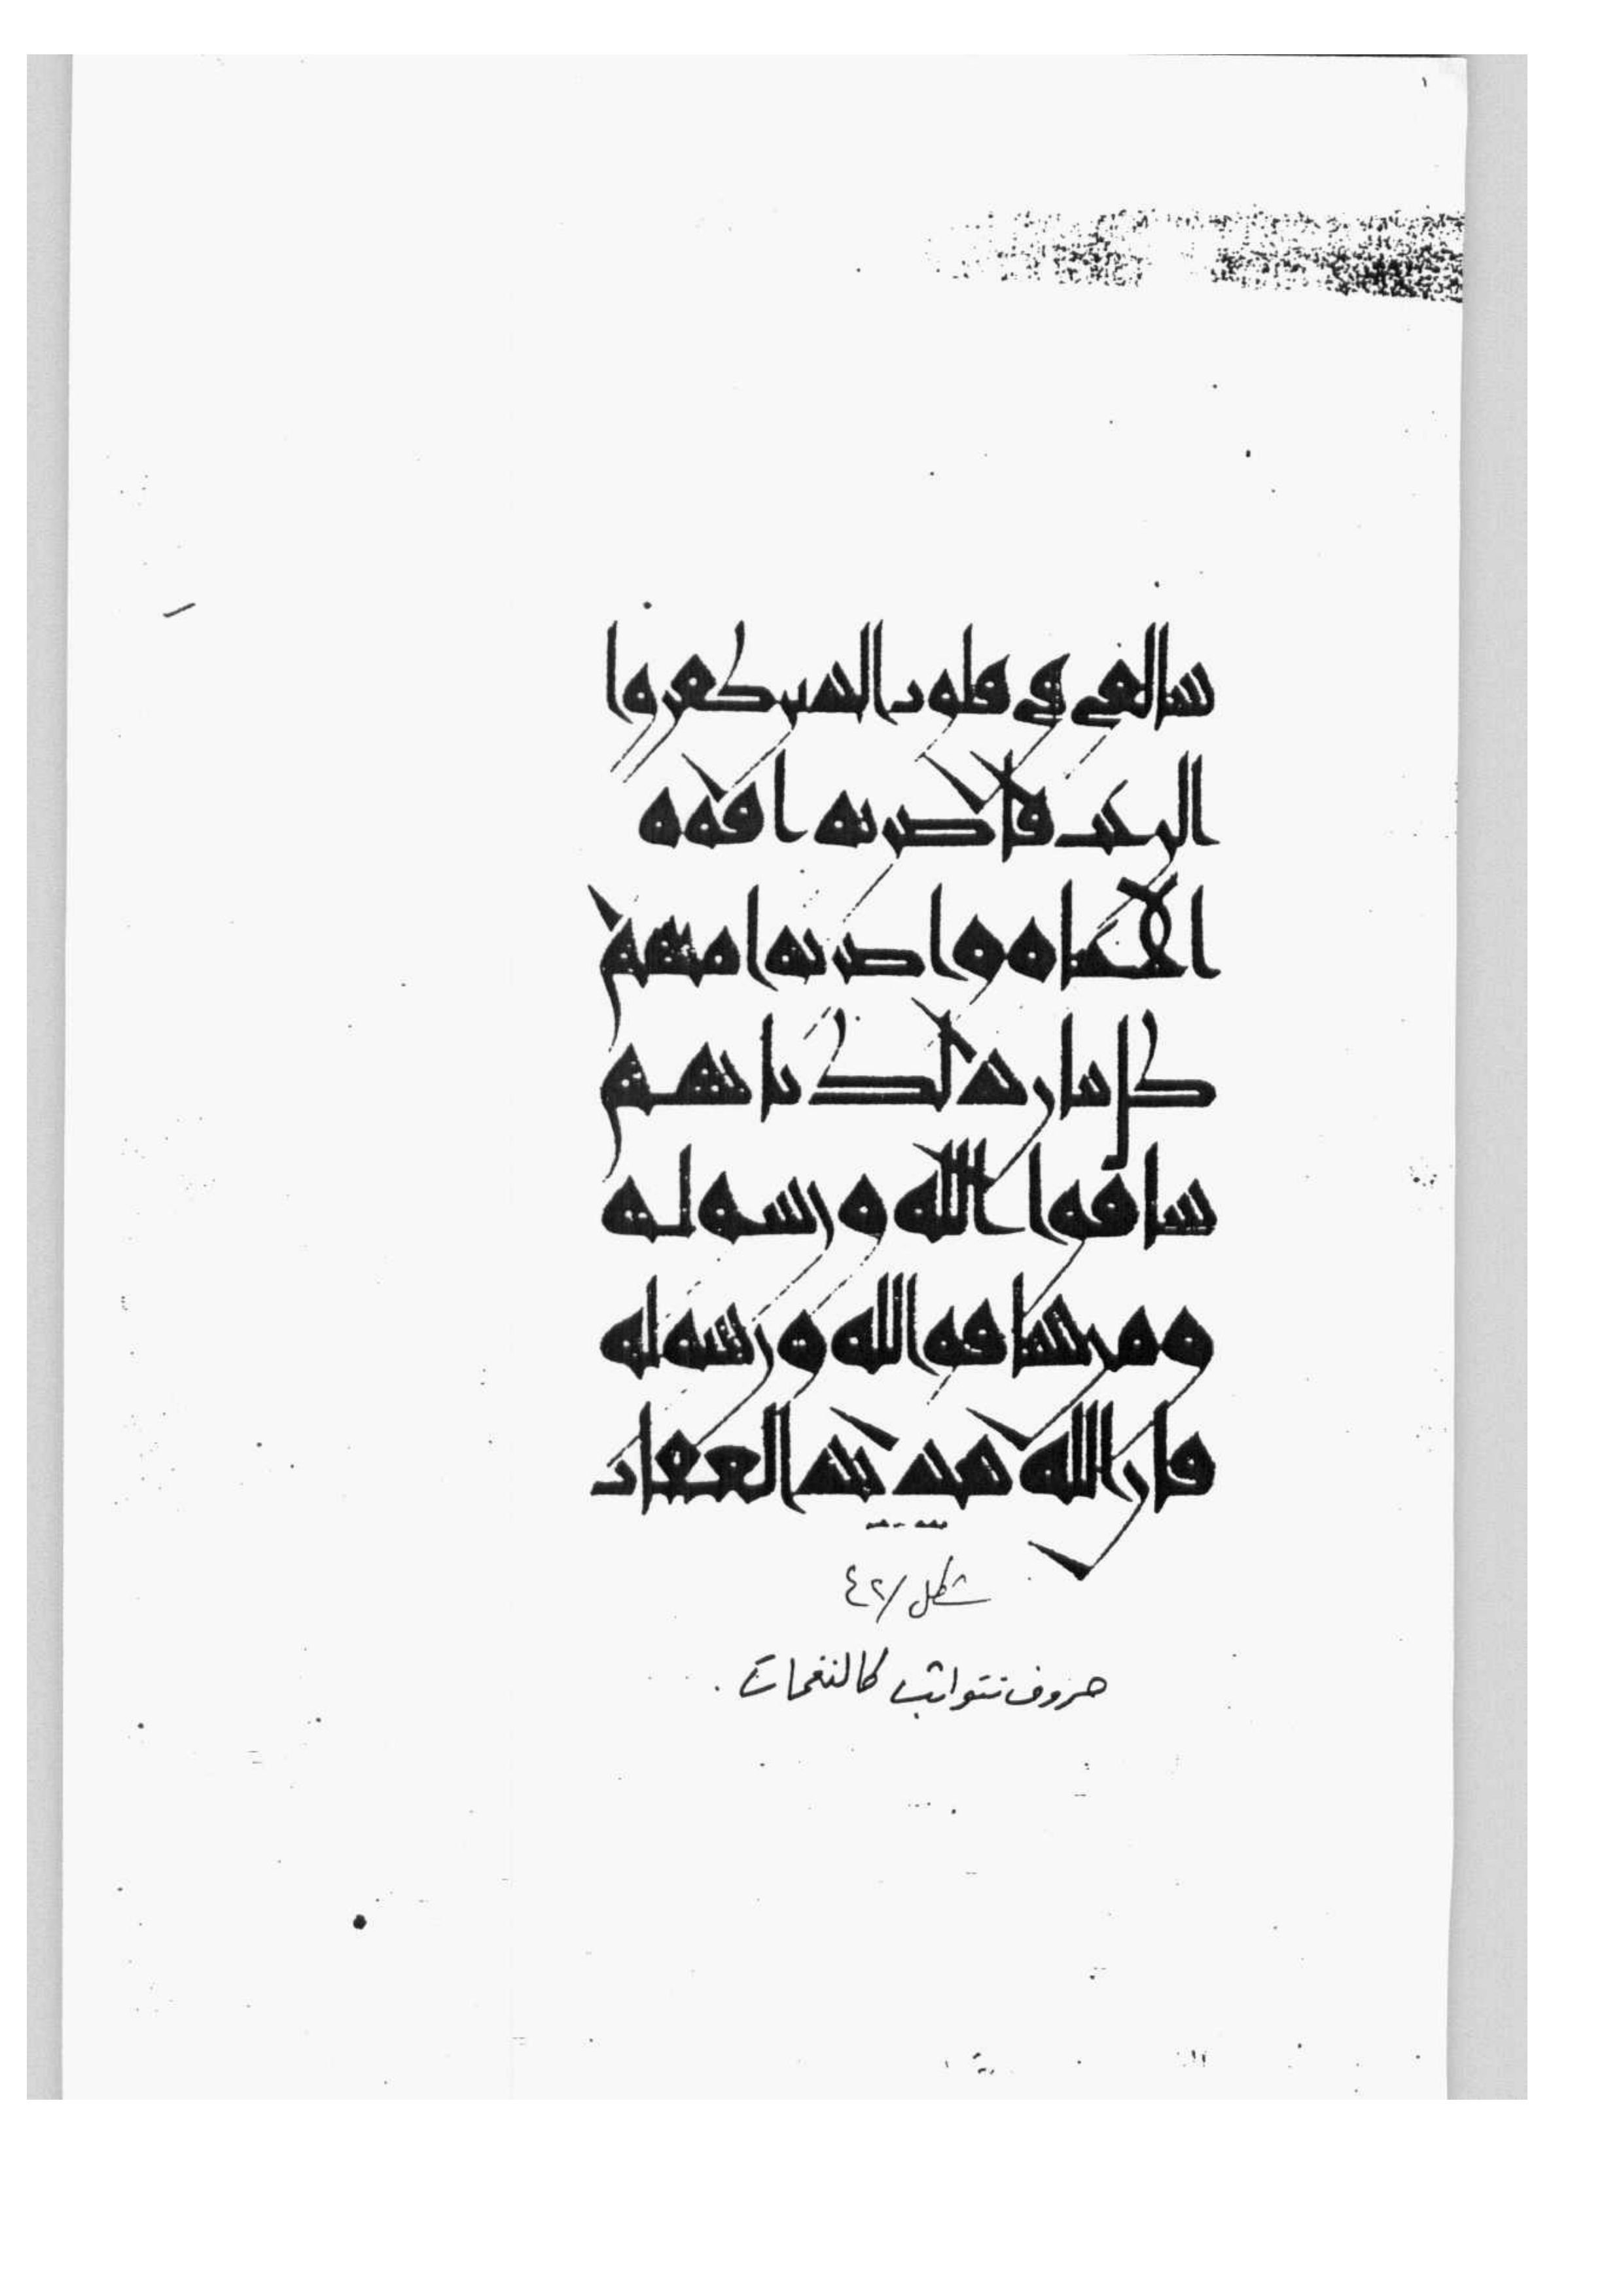 سالقي في قلوب الذين كفروا
الرعب فاضربوا فوق
الاعناق واضربوا منهم
كل بنان ذلك بانهم
شاقوا الله ورسوله
ومن يشاقق الله ورسوله
فان الله شديد العقاب
شكل / ٤٢
حروف تتواثب كالنغمات .